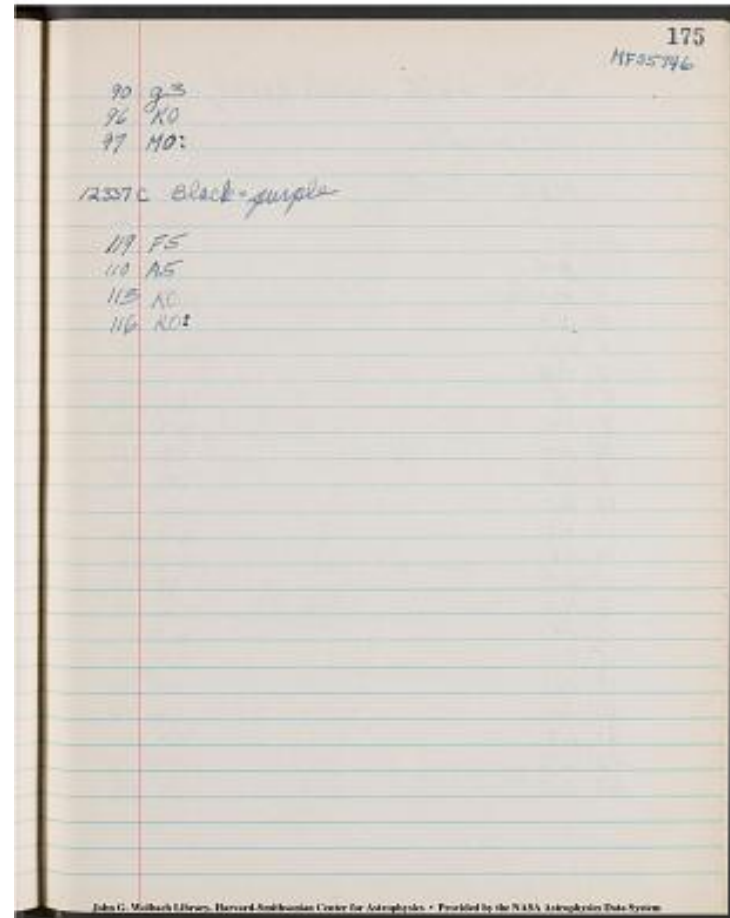 175
MF35746
90 g5
96 K0
97 M0:
12337 C Black-purple
119 F5
110 A5
115 K0
116 K0:
John G. Wolbach Library, Harvard-Smithsonian Center for Astrophysics • Provided by the NASA Astrophysics Data System